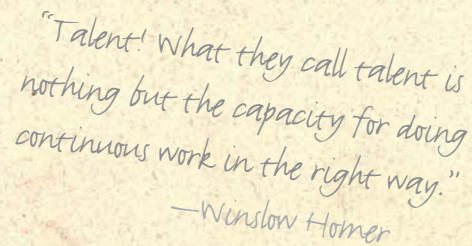 “Talent! What they call talent is
nothing but the capacity for doing
continuous work in the right way.”
—Winslow Homer